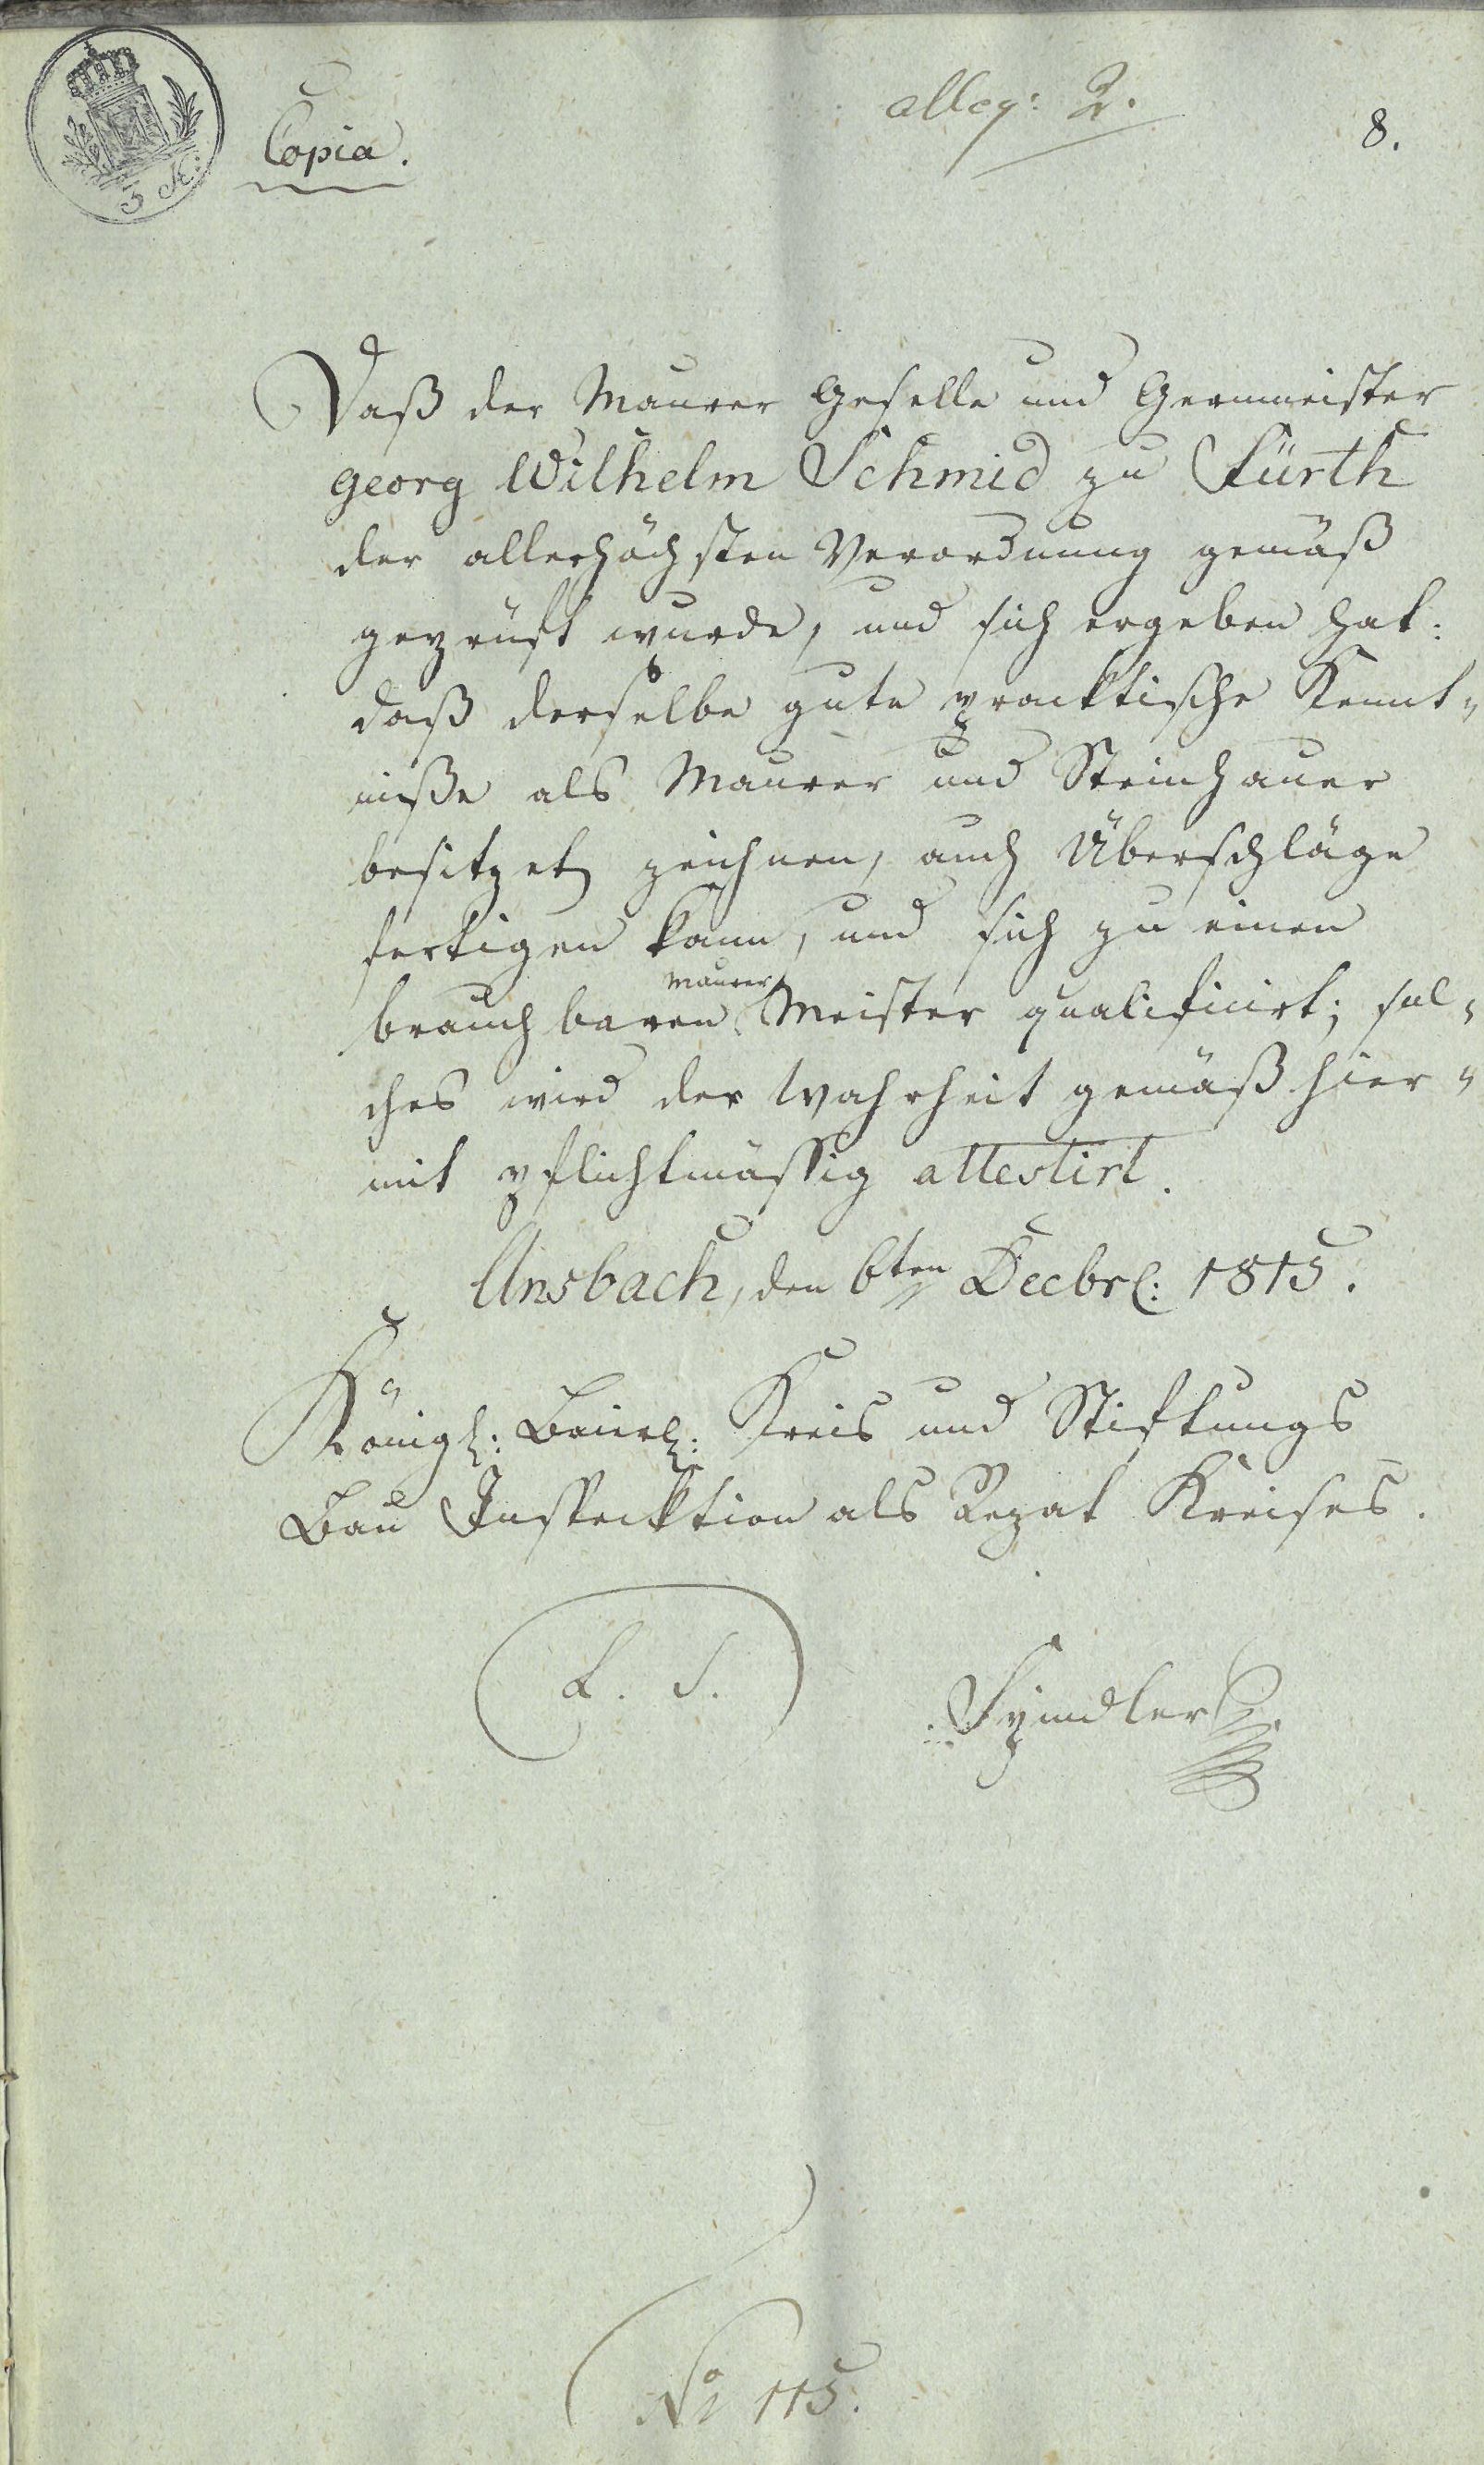 alleg: 2.
8.
3 K:
Copia.
Daß der Maurer Geselle und Germeister
Georg Wilhelm Schmid zu Fürth
der allerhöchsten Verordnung gemäß
geprüft wurde, und sich ergeben hat:
daß derselbe gute pracktische Kennt„
niße als Maurer und Steinhauer
besitzet, zeichnen, auch Überschläge
fertigen kann, und sich zu einen
brauchbaren Maurer Meister qualificirt; sol„
ches wird der Wahrheit gemäß hier„
mit pflichtmässig attestirt.
Ansbach, den 6ten Decbr: 1815.
Königl: Baierl: Kreis und Stiftungs
Bau Inspecktion als Rezat Kreises.
L. S.
Spindler
No 115.